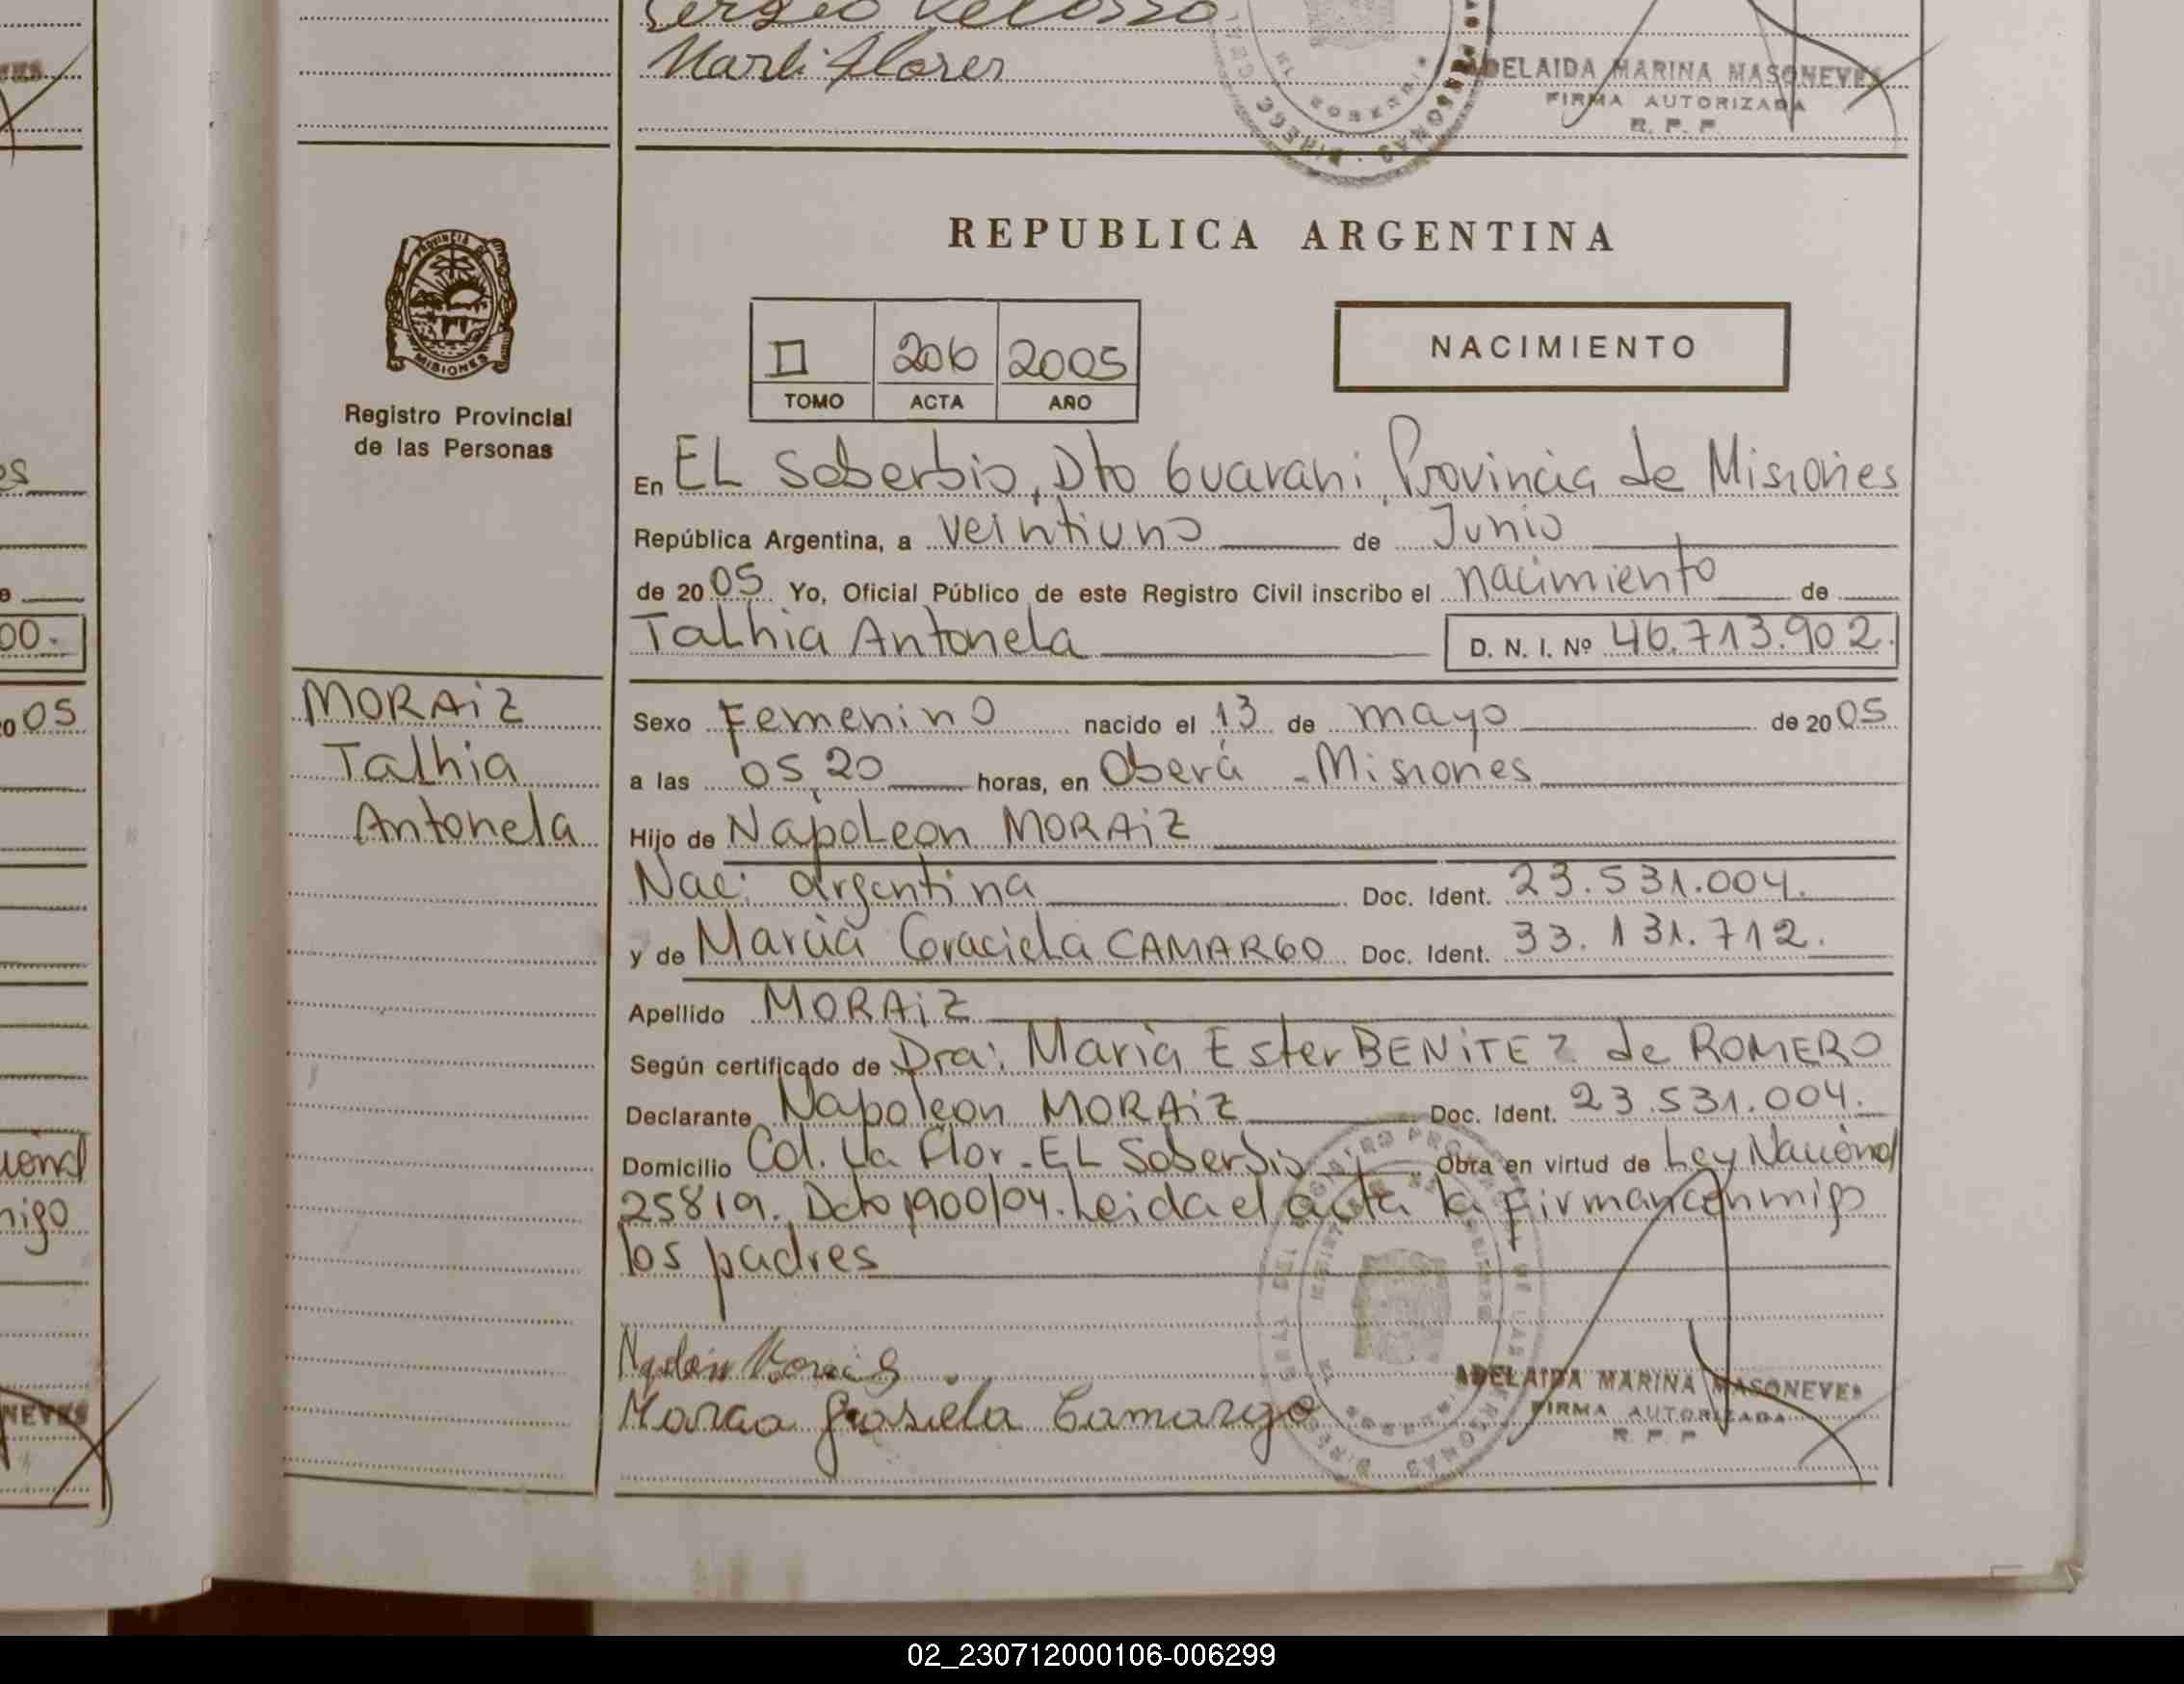 Sergio Velosso
Marli Flores
ADELAIDA MARINA MASONEVES
FIRMA AUTORIZADA
R. P. P.
REPUBLICA ARGENTINA
PROVINCIA DE
MISIONES
Registro Provincial
de las Personas
II 206 2005
TOMO ACTA AÑO
NACIMIENTO
En EL Soberbio, Dto Guarani, Provincia de Misiones
República Argentina, a veintiuno de Junio
de 2005 Yo, Oficial Público de este Registro Civil inscribo el nacimiento de
Talhia Antonela D. N. I. Nº 46.713.902.
MORAiZ
Talhia
Antonela
Sexo Femenino nacido el 13 de mayo de 2005
a las 05,20 horas, en Oberá - Misiones
Hijo de Napoleon MORAiZ
Nac: argentina Doc. Ident. 23.531.004.
y de Marcia Graciela CAMARGO Doc. Ident. 33.131.712.
Apellido MORAiZ
Según certificado de Dra: Maria Ester BENiTEZ de ROMERO
Declarante Napoleon MORAiZ Doc. Ident. 23.531.004.
Domicilio Col. La Flor - EL Soberbio Obra en virtud de Ley Nacional
25819. Dcto 1900/04. Leida el acta la firman conmigo
los padres
ADELAIDA MARINA MASONEVES
FIRMA AUTORIZADA
R. P. P.
Graciela Camargo
02_230712000106-006299